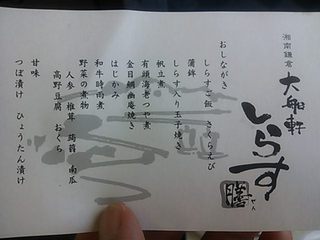 湘南鎌倉
大船軒
しらす
膳
ぜん
おしながき
しらすご飯 さくらえび
蒲鉾
しらす入り玉子焼き
帆立煮
有頭海老つや煮
金目鯛幽庵焼き
はじかみ
和牛時雨煮
野菜の煮物
人参 椎茸 蒟蒻 南瓜
高野豆腐 おくら
甘味
つぼ漬け ひょうたん漬け